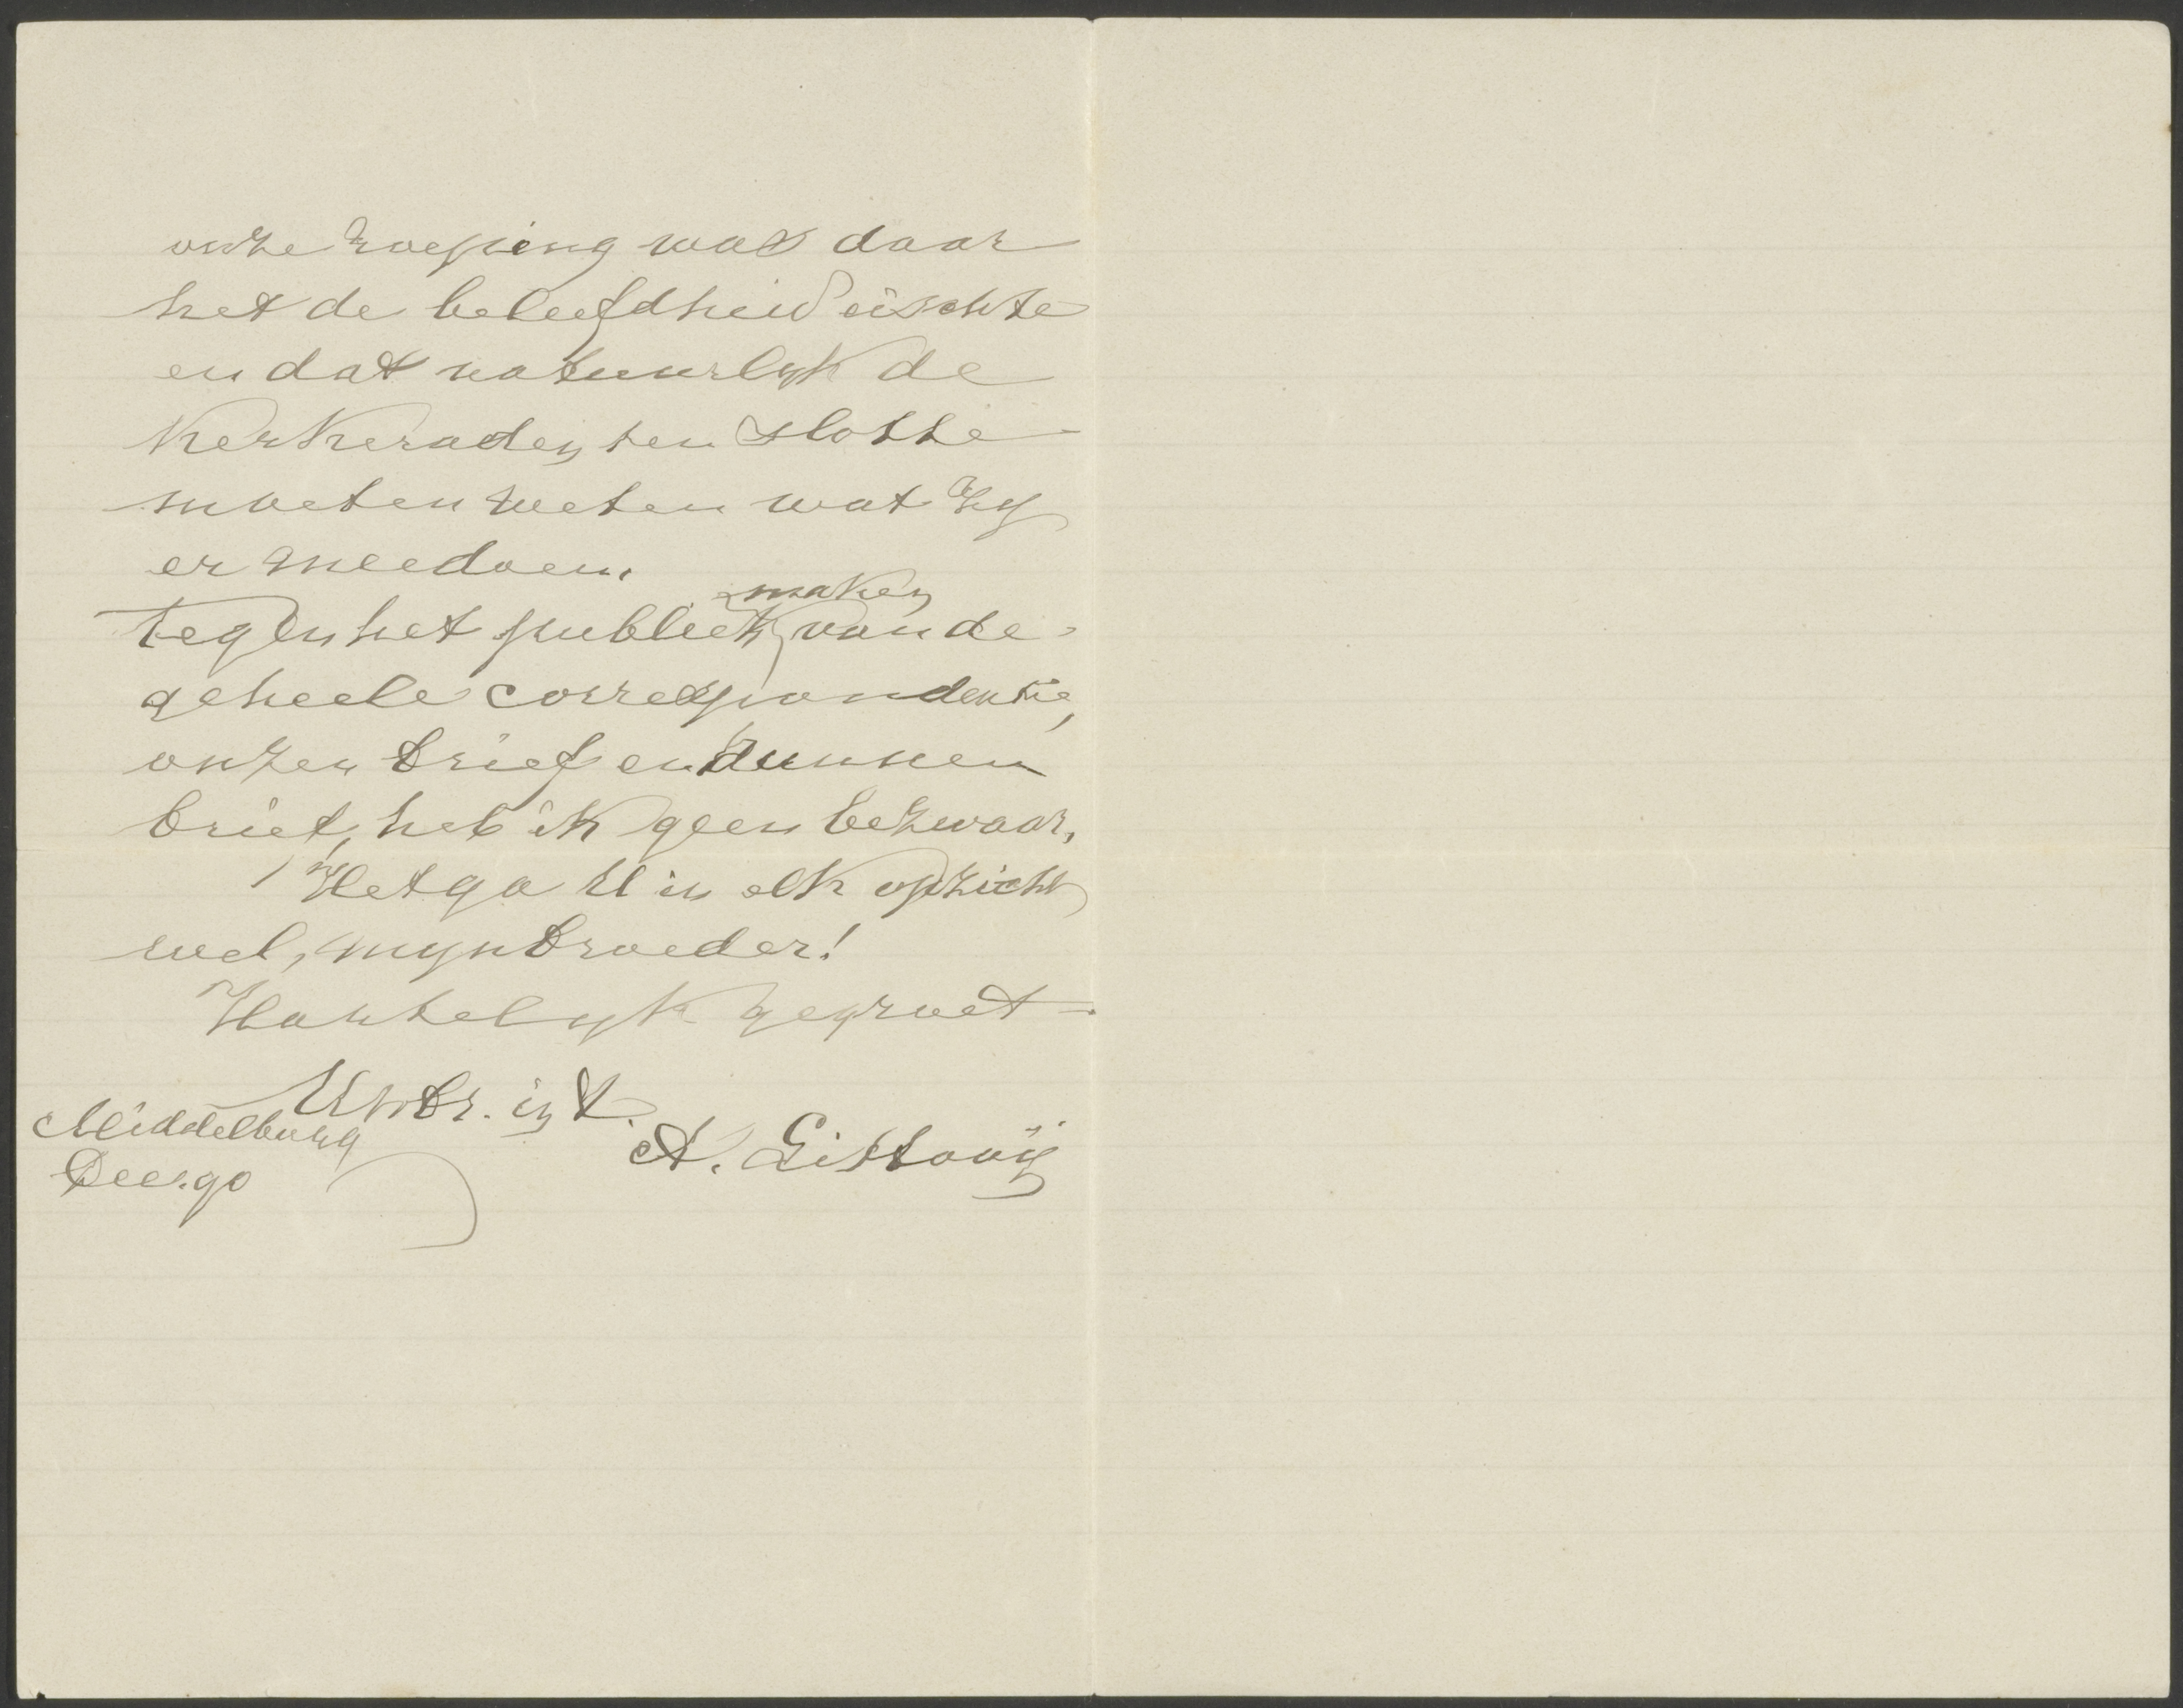 onze roeping was daar
het de beleefdheid eischte
en dat natuurlyk de
Kerkeraden ten slotte
moeten weten wat zy
er mee doen.
maken
Tegen het publiek van de
geheele correspondentie,
onzen brief en hunnen
brief, heb ik geen bezwaar.
Het ga U in elk opzicht
wel, myn broeder!
Hartelyk gegroet
Uw br. in X.
A. Littooij
Middelburg
Dec. 90